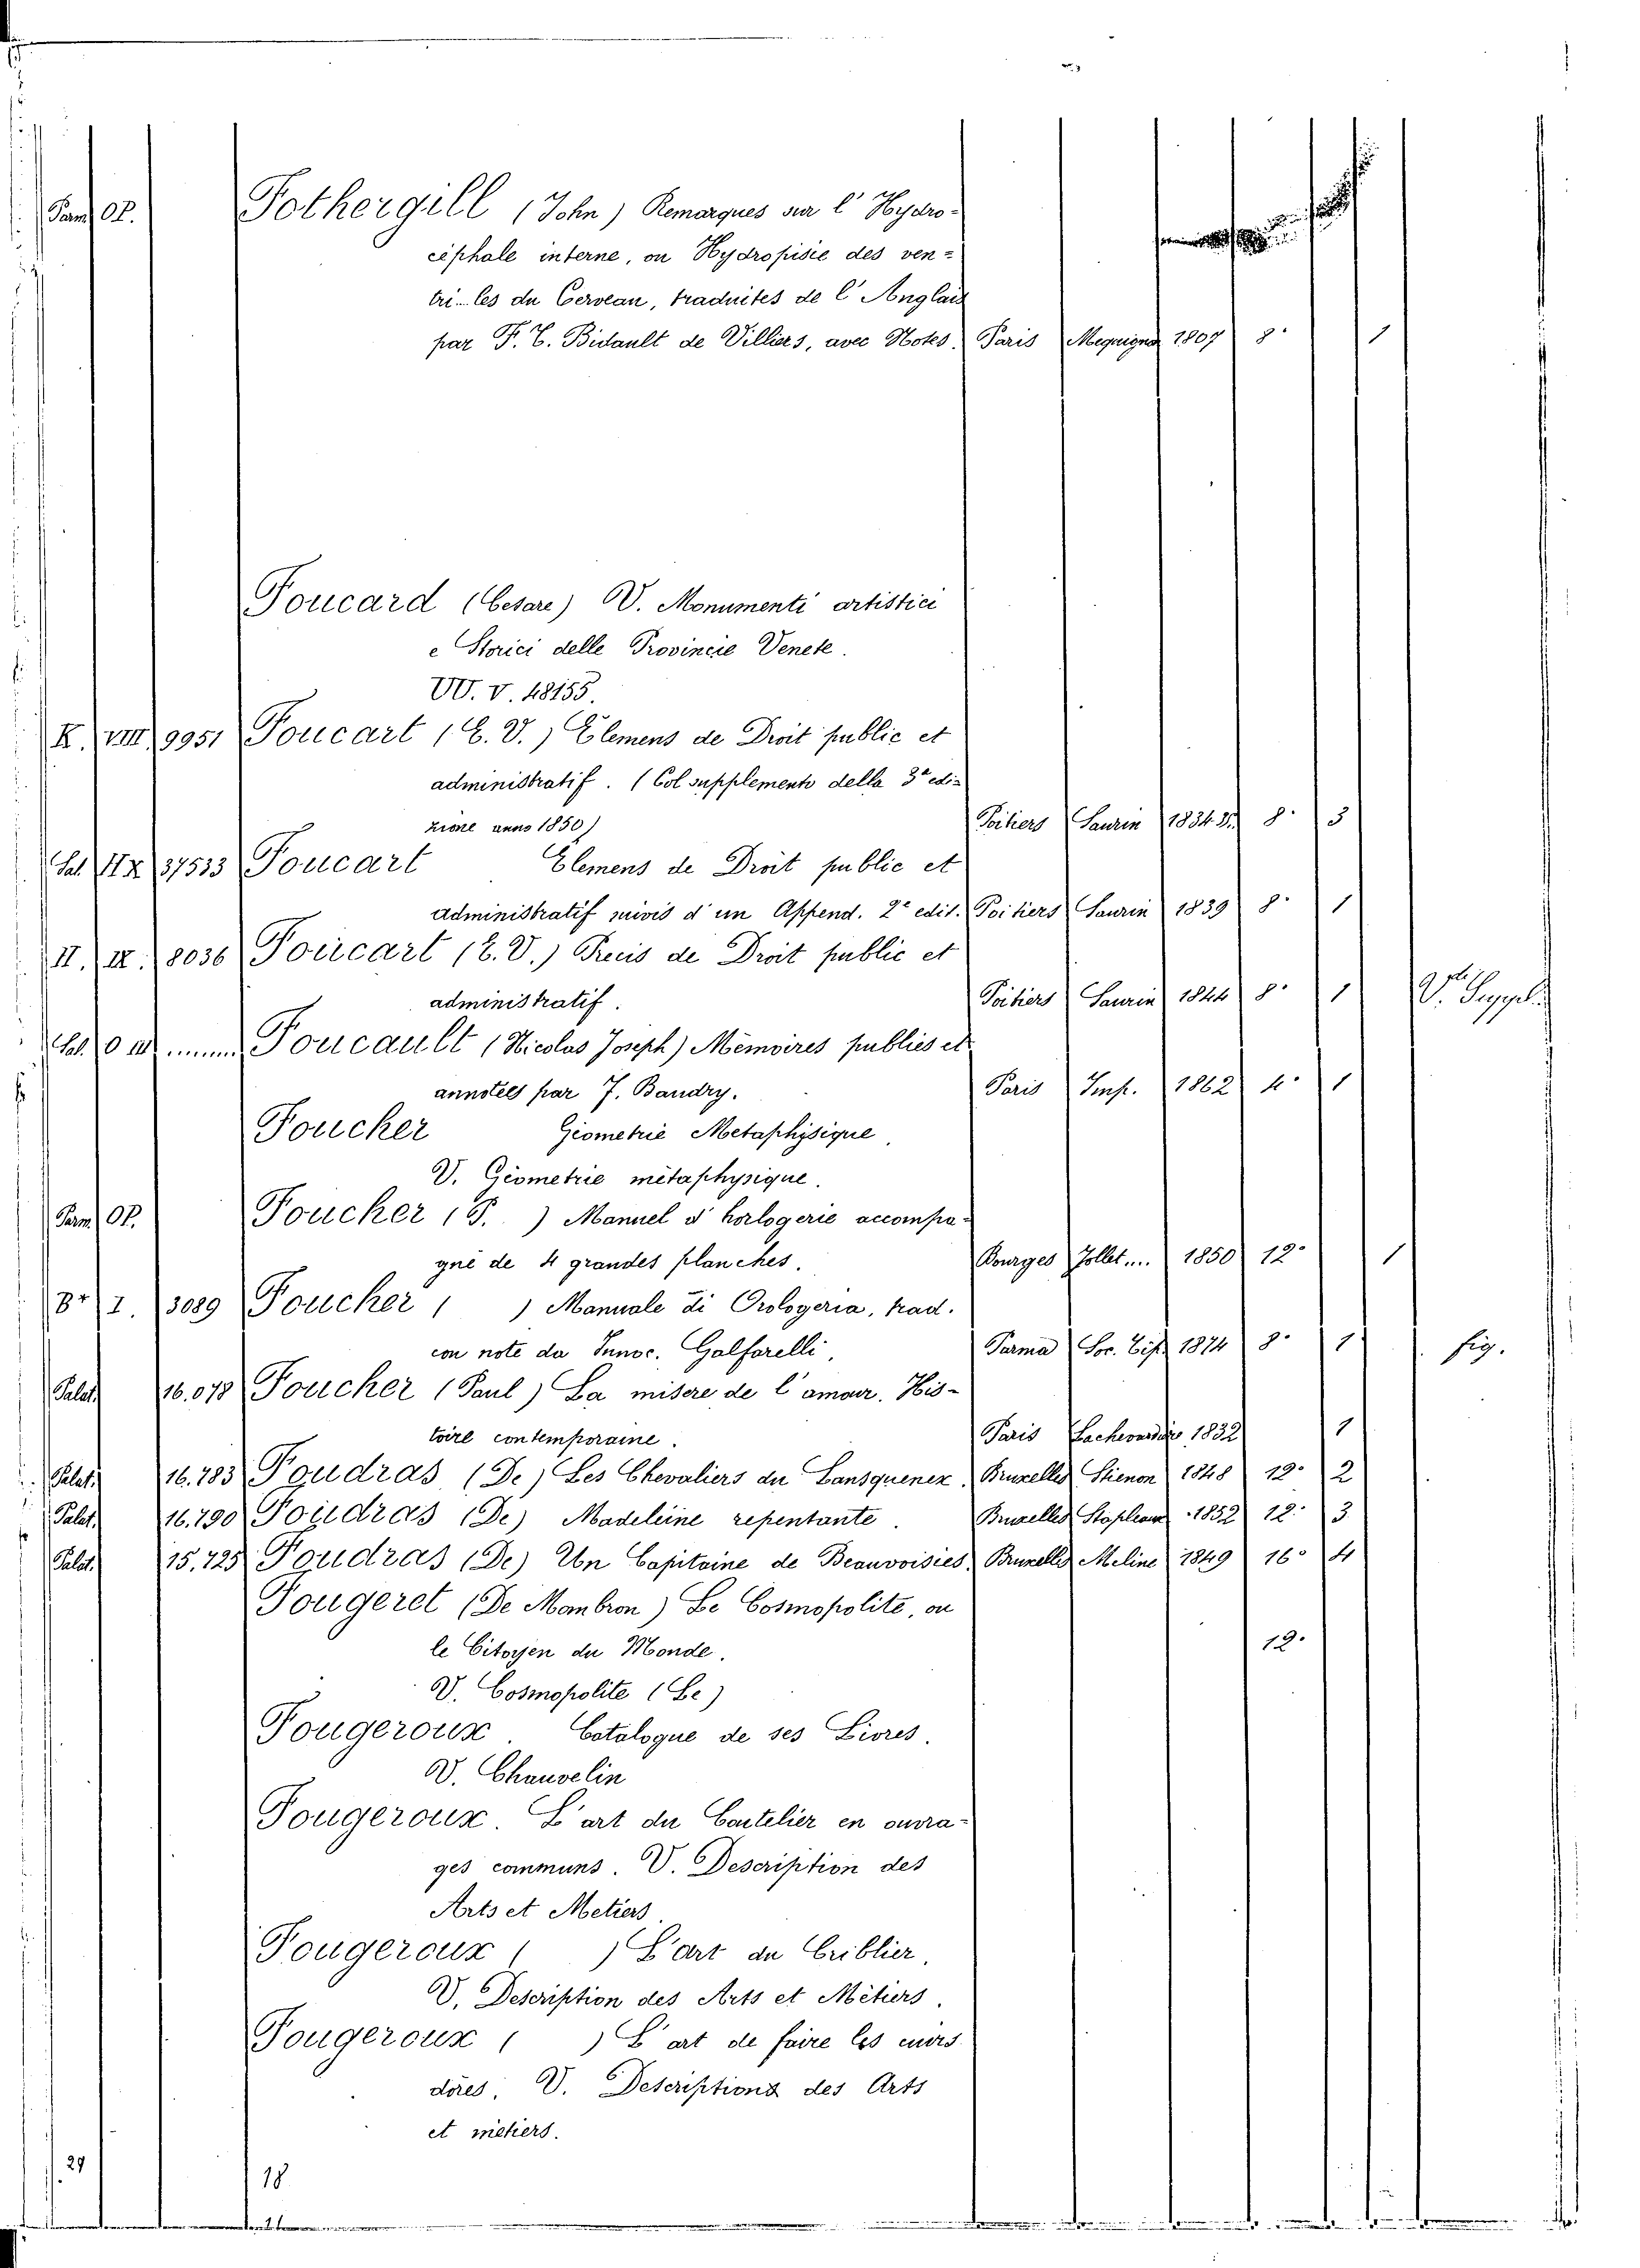 Parm. OP. Fothergill (John) Remarques sur l' Hydro-
céphale interne, ou Hydropisie des ven-
tri les du Cerveau, traduites de l' Anglais
par F. C. Bidault de Villiers, avec Notes. Paris Mequignon 1807 8° 1
Foucard (Cesare) V. Monumenti artistici
e Storici delle Provincie Venete.
VV. V. 48155.
K. VIII 9951 Foucart (E. V.) Elemens de Droit public et
administratif. (Col supplemento della 3a edi-
zione anno 1850) Poitiers Saurin 1834.35. 8° 3
Sal. 37533 Foucart Elemens de Droit public et
administratif suivis d' un Append. 2e edit. Poitiers Saurin 1839 8° 1
II. IX. 8036 Foucart (E. V.) Precis de Droit public et
administratif. Poitiers Saurin 1844 8° 1 V. Suppl.
Sal. O III ....... Foucault (Nicolas Joseph) Mémoires publiés et
annotels par F. Baudry. Paris Imp. 1862 4° 1
Foucher Géometrie Metaphisique.
V. Géometrie métaphysique.
Parm. OP. Foucher (P. ) Manuel d' horlogerie accompa-
gné de 4 grandes planches. Bourges Jollet.... 1850 12° 1
8° I. 3089 Foucher ( ) Manuale di Orologeria, trad.
con note da Innoc. Golfarelli. Parma Soc. Tip. 1874 8° 1 fig.
Palat. 16.078 Foucher (Paul) La misere de l'amour. His-
toire contemporaine. Paris Lachevardière 1832 1
Palat. 16.783 Foudras (De) Les Chevaliers du Lansquenez. Bruxelles Stienon 1848 12° 2
Palat. 16.790 Foudras (De) Madeleine repentante. Bruxelles Stapleaux 1852 12° 3
Palat. 15.725 Foudras (De) Un Capitaine de Beauvoisies. Bruxelles Meline 1849 16° 4
Fougeret (De Monbron) Le Cosmopolite, ou
le Citoyen du Monde. 12°
V. Cosmopolite (Le)
Fougeroux. Catalogue de ses Livres.
V. Chauvelin
Fougeroux. L'art du Coutelier en ouvra-
ges communs. V. Description des
Arts et Metiers.
Fougeroux ( ) L'art du Criblier.
V. Description des Arts et Métiers.
Fougeroux ( ) L'art de faire les cuirs
dorés. V. Descriptions des Arts
et métiers.
29 18